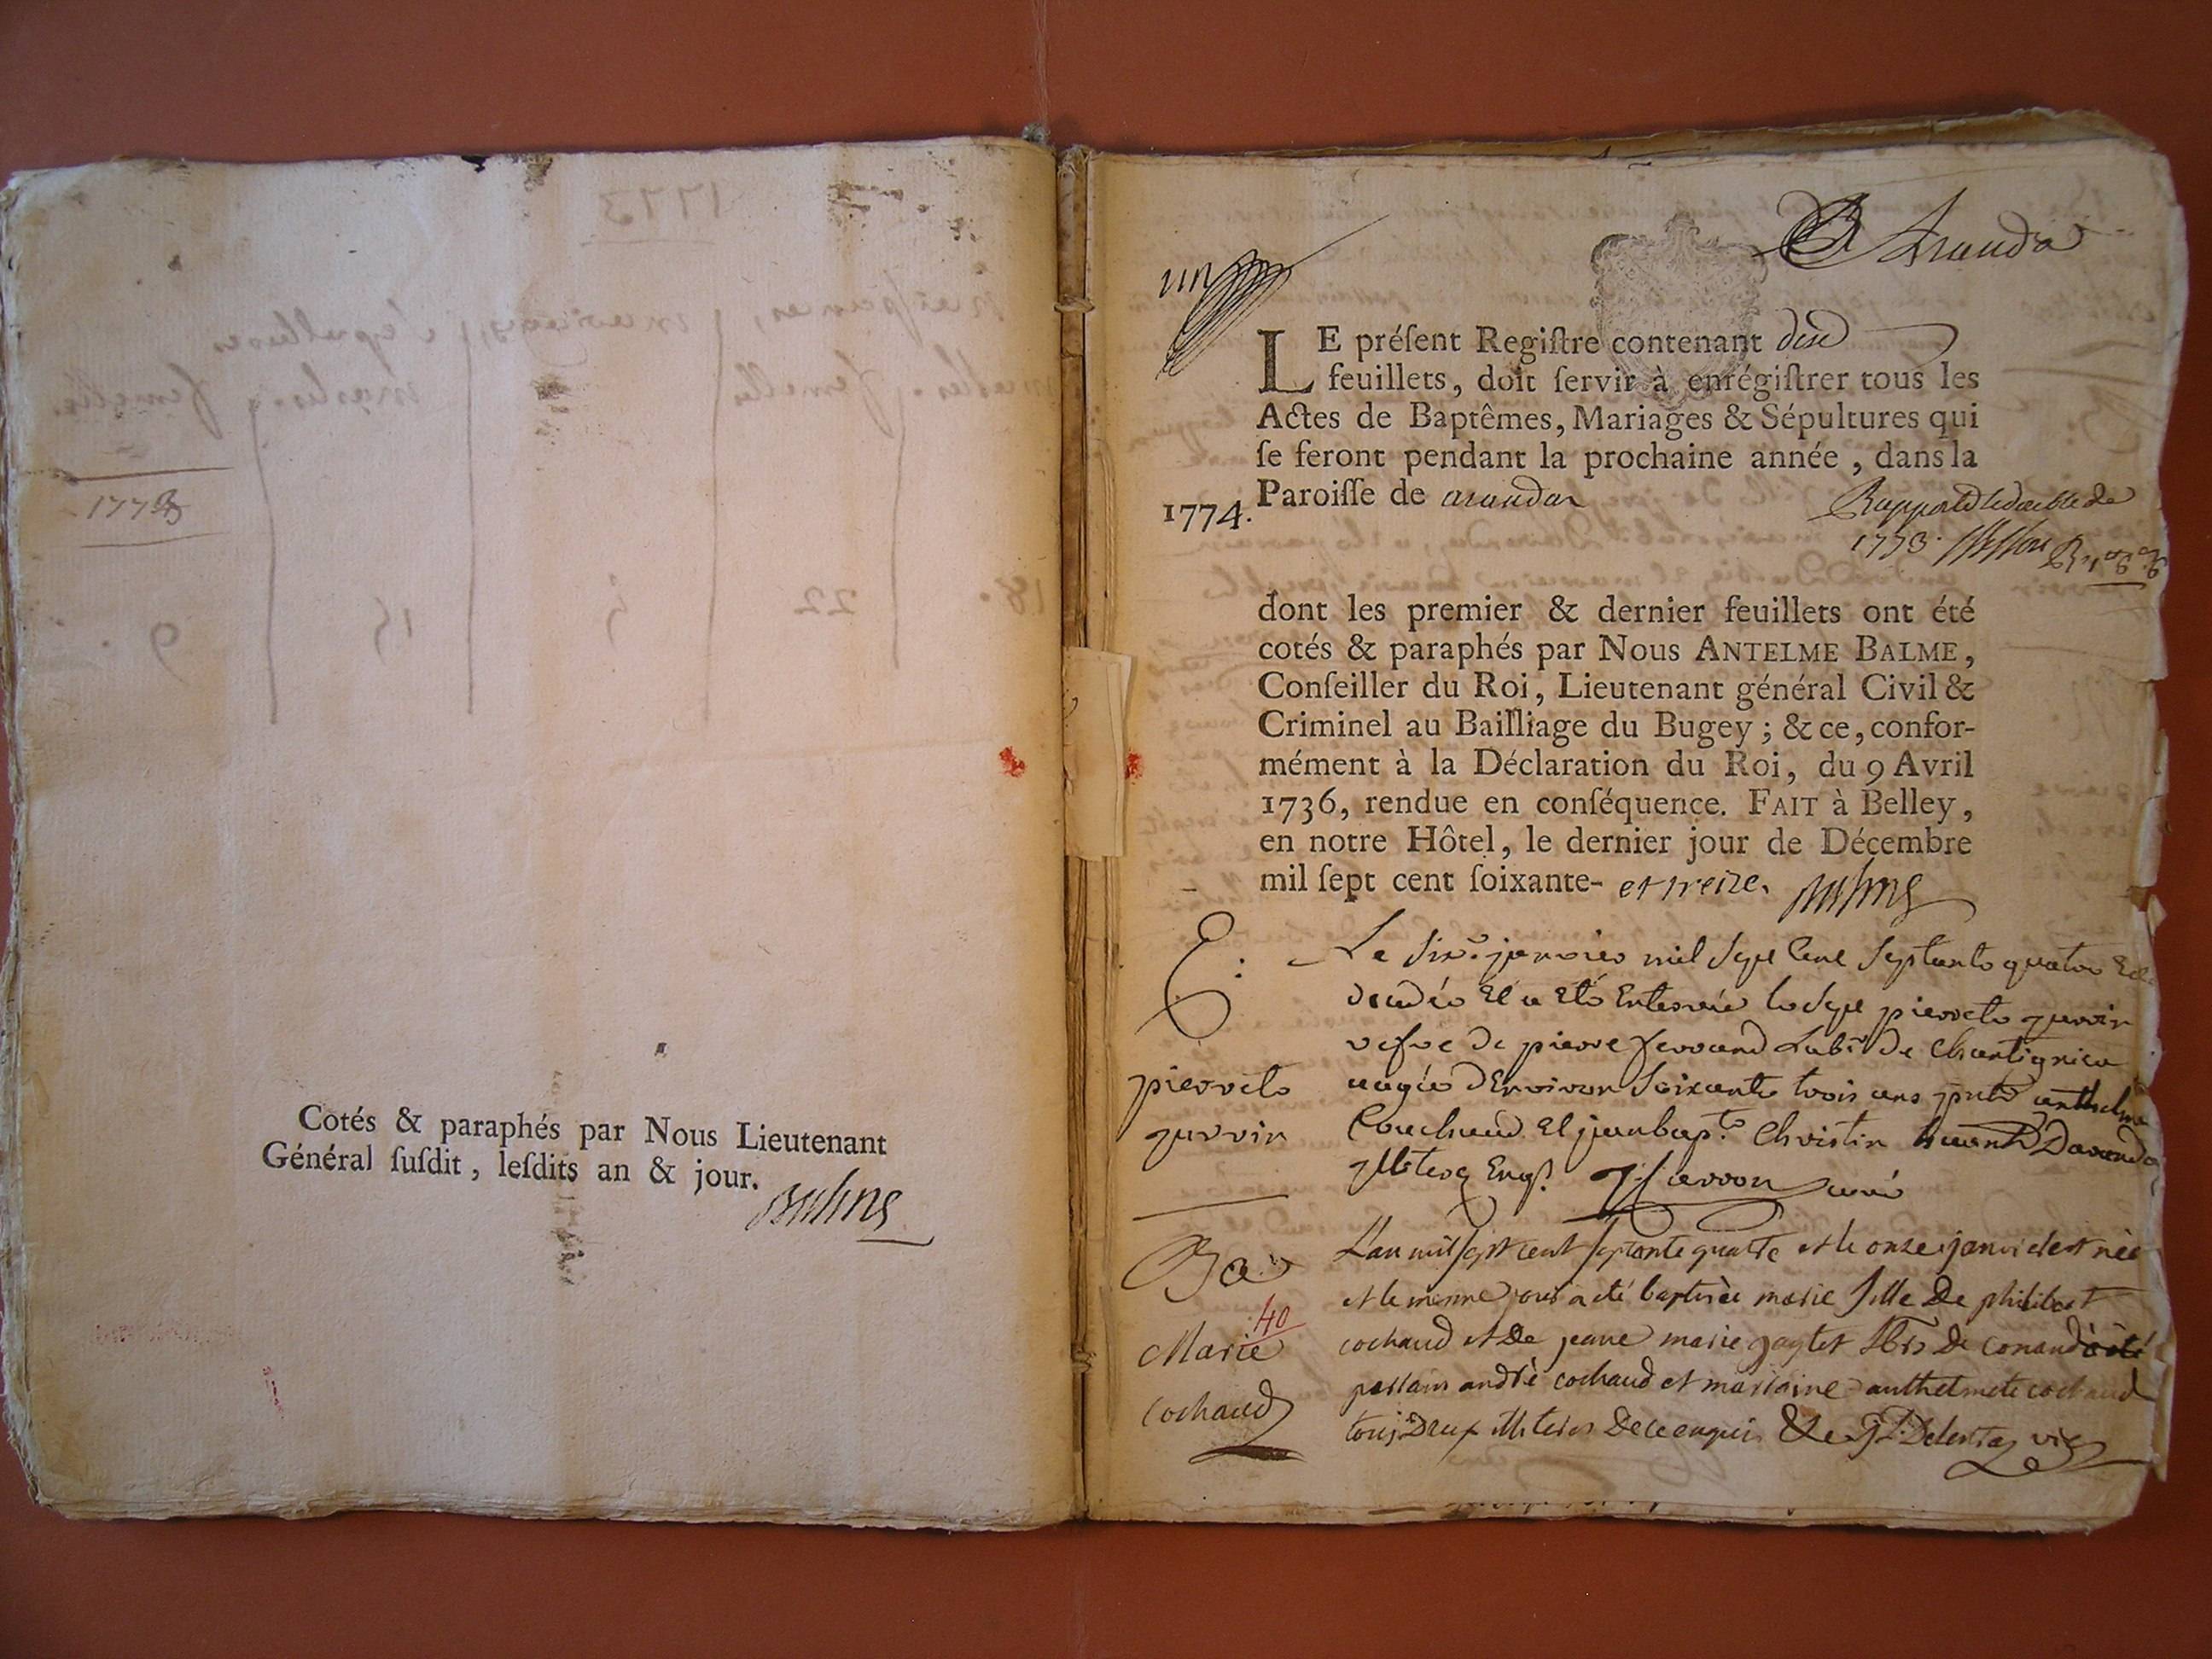 1773
Cotés & paraphés par Nous Lieutenant
Général ſuſdit, leſdits an & jour.
un
Aranda
LE préſent Regiſtre contenant
feuillets, doit ſervir à enrégiſtrer tous les
Actes de Baptêmes, Mariages & Sépultures qui
ſe feront pendant la prochaine année, dans la
1774. Paroiſſe de arandas
Rapporté le double de
1773.
dont les premier & dernier feuillets ont été
cotés & paraphés par Nous ANTELME BALME,
Conſeiller du Roi, Lieutenant général Civil &
Criminel au Bailliage du Bugey; & ce, confor-
mément à la Déclaration du Roi, du 9 Avril
1736, rendue en conſéquence. FAIT à Belley,
en notre Hôtel, le dernier jour de Décembre
mil ſept cent ſoixante- et treize.
Le six janvier mil sept cent septante quatre Est
decedéé Et a Eté Enterrée pierrete juvvin
vefve de pierre ferrand Labr de
aagée d'Environ Soixante trois ans anthelme
Couchaud Et jean bapt. Christin
Enqs. curé
pierrete
juvvin
L'an mil sept cent septante quatre et le onze janvier est née
et le mesme jour a eté baptisée marie fille de philibert
cochaud et de jeane marie de conand
parrain andré cochaud et marraine anthelmete cochaud
tous deux illiteres de ce enquis &c vic
Ba
40
Marie
cochaud